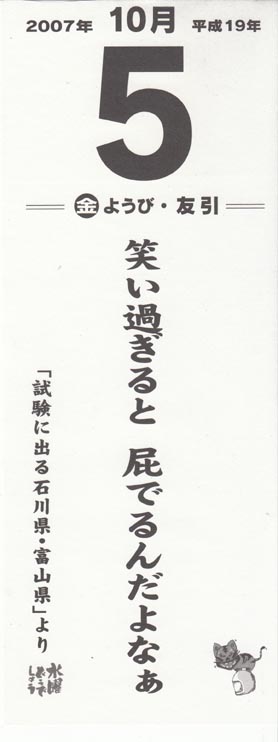 2007年 10月 平成19年
5
㊎ようび・友引
笑い過ぎると 屁でるんだよなぁ
「試験に出る石川県・富山県」より
水曜
どうで
しょう